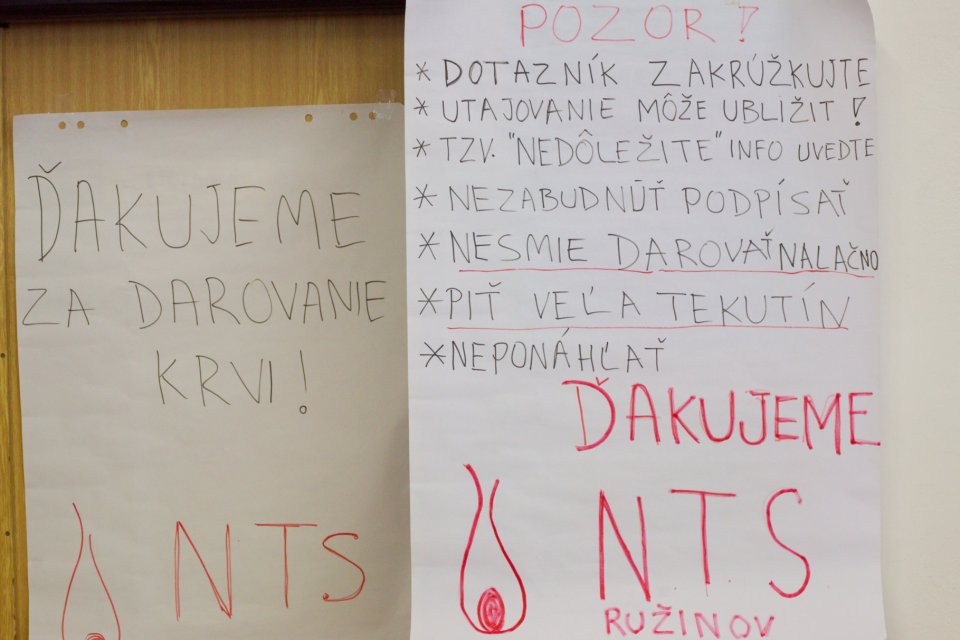 ĎAKUJEME
ZA DAROVANIE
KRVI!
NTS
POZOR!
* DOTAZNÍK ZAKRÚŽKUJTE
* UTAJOVANIE MÔŽE UBLÍŽIŤ!
* TZV. "NEDÔLEŽITE" INFO UVEDTE
* NEZABUDNÚŤ PODPÍSAŤ
* NESMIE DAROVAŤ NALAČNO
* PIŤ VEĽA TEKUTÍN
* NEPONÁHĽAŤ
ĎAKUJEME
NTS
RUŽINOV